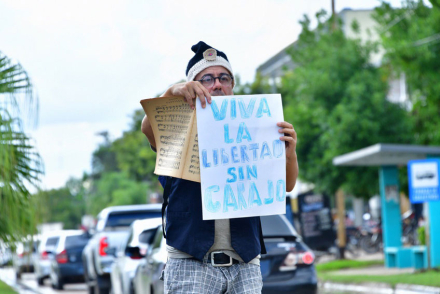 VIVA
LA
LIBERTAD
SIN
CARAJO